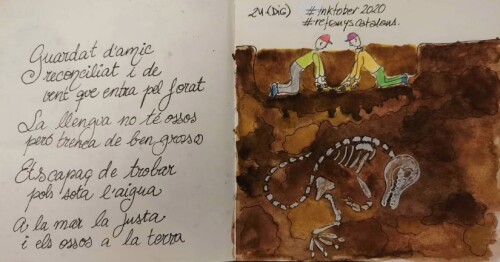 Guardat d'amic
reconciliat i de
vent que entra pel forat
La llengua no té ossos
però trenca de ben grossos
Ets capaç de trobar
pols sota l'aigua
A la mar la fusta
i els ossos a la terra
24 (DiG)
#inktober 2020
#refranyscatalans.